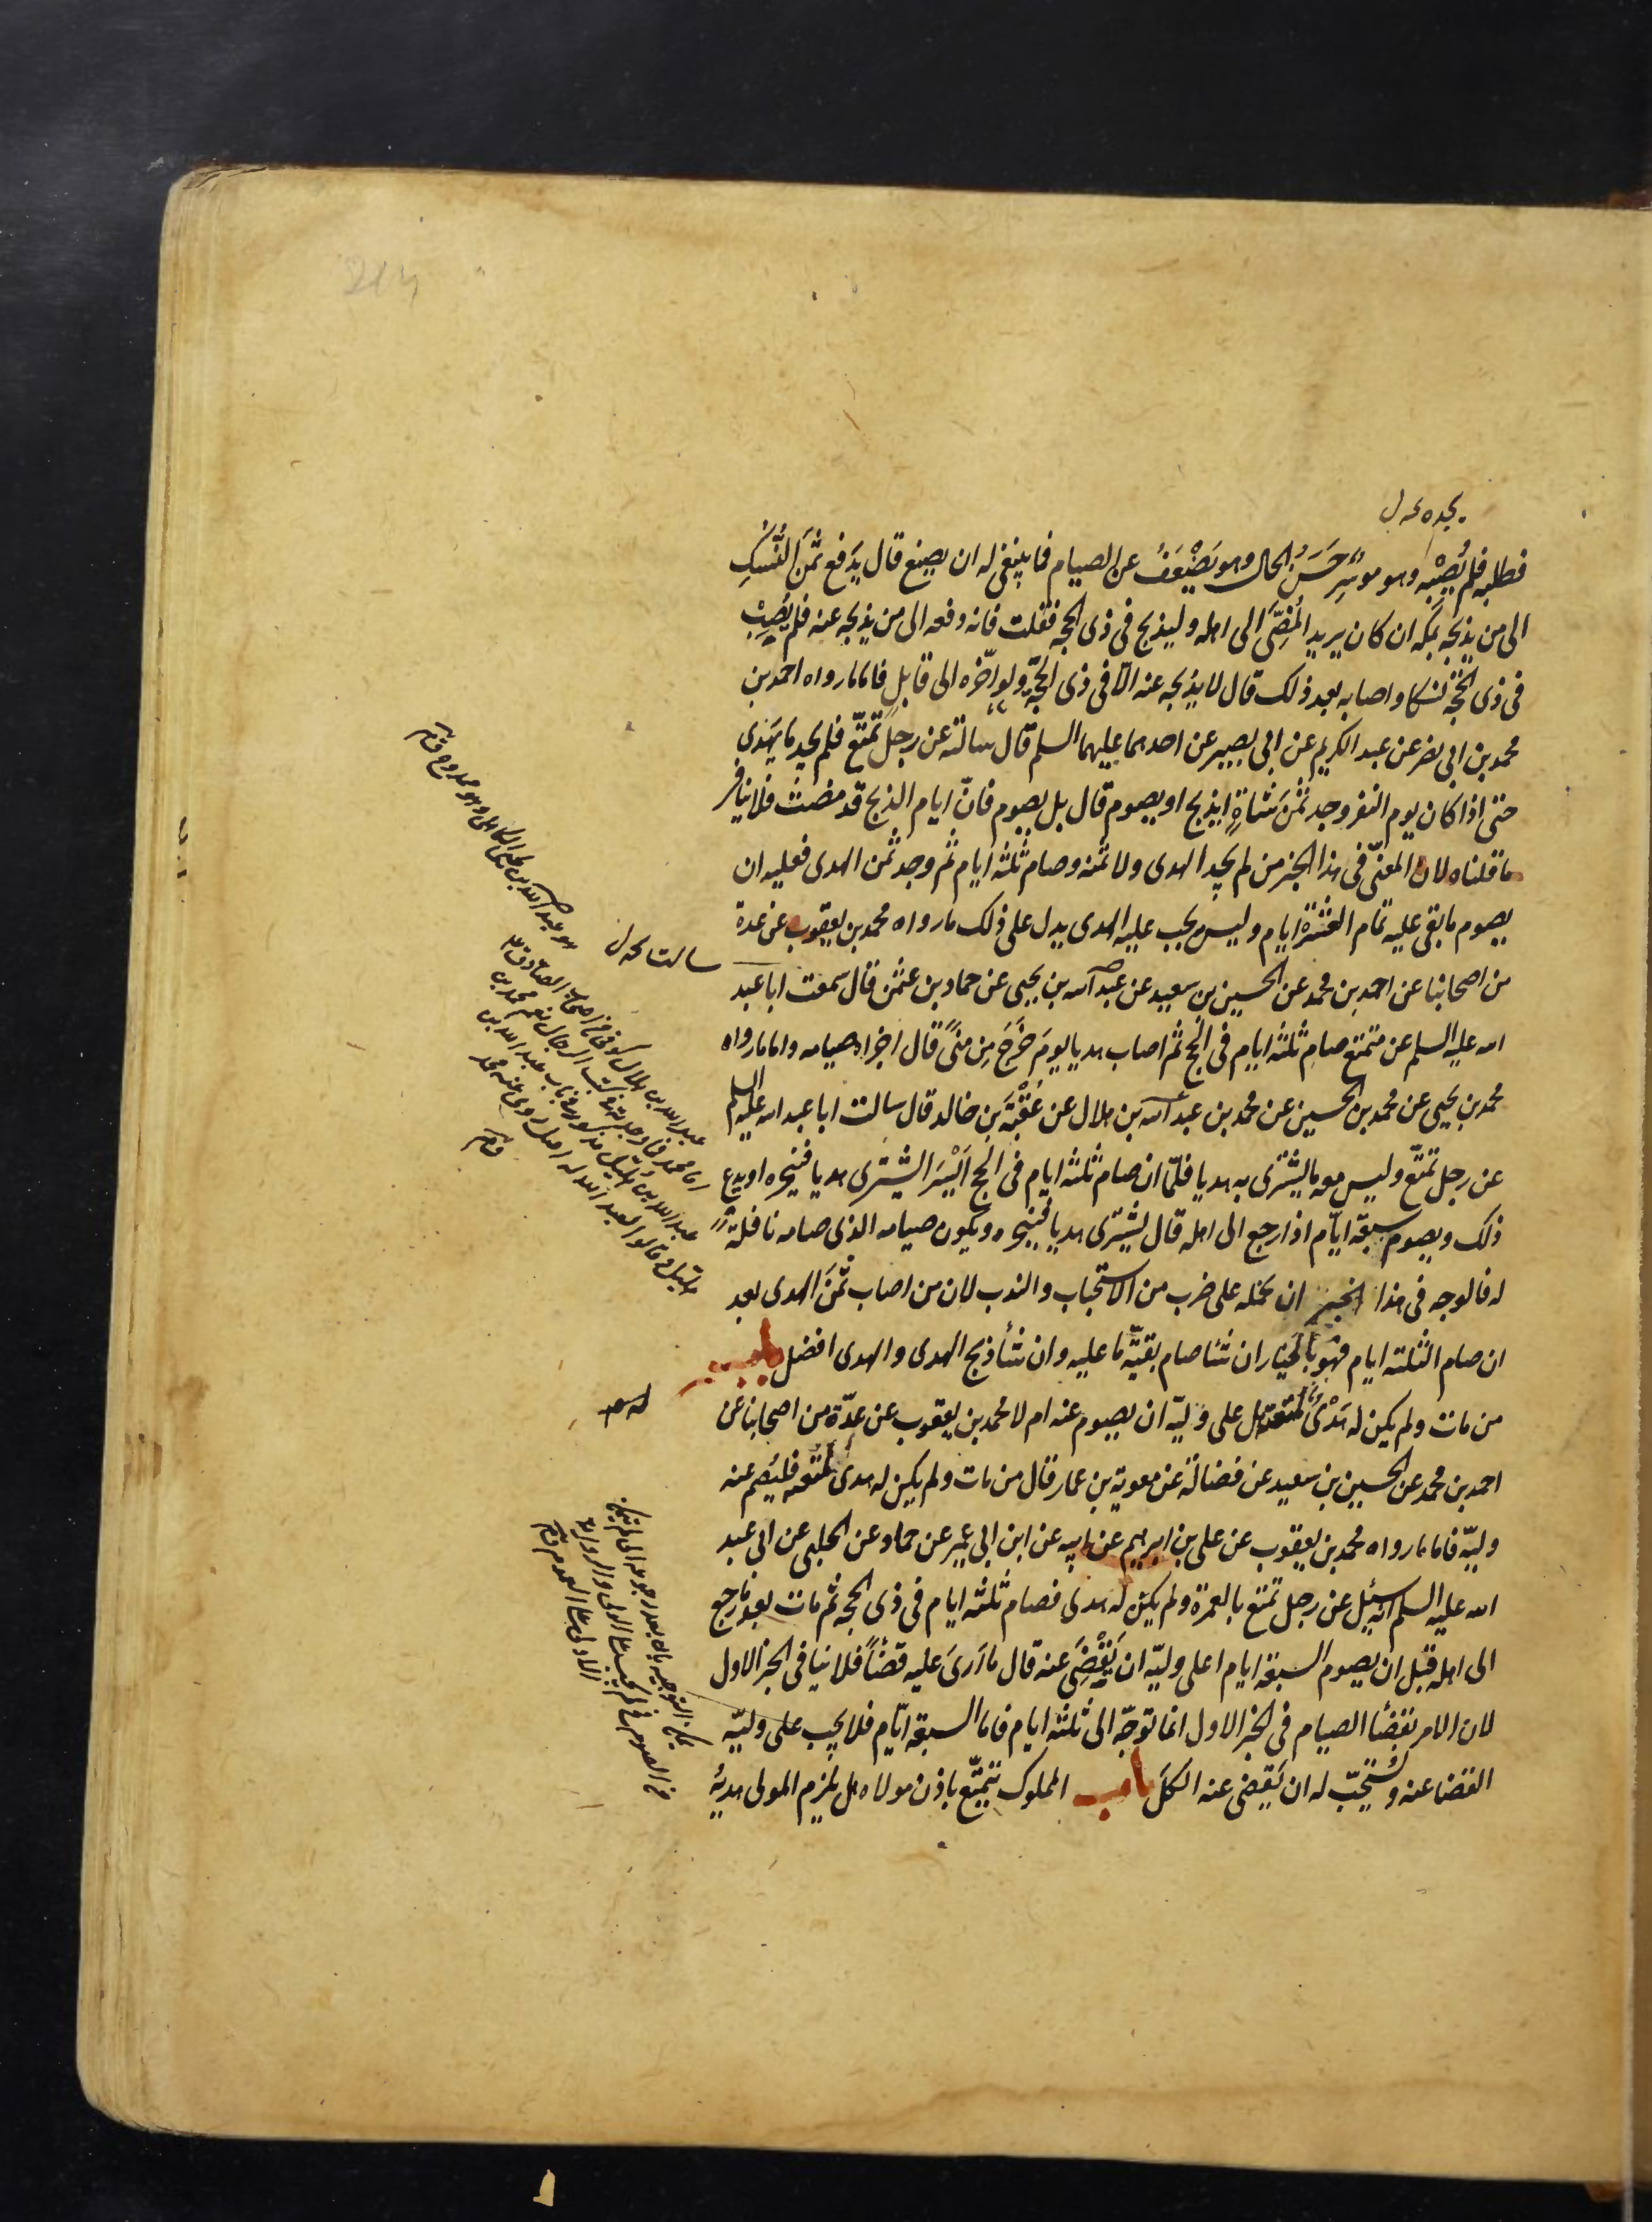 يجده نحه ل
فطلبه فلم يُصِبْه وهو موسِرٌ حَسَنُ الحال وهو يَضْعَفُ عن الصيام فما ينبغى له ان يصنع قال يَدفع ثَمَنَ النُّسُكِ
الى من يذبَحَه بمكه ان كان يريد المُضِىَّ الى اهله وليذبح فى ذى الحجه فقلت فانه دفعه الى من يذبحه عنه فلم يُصِبْ
فى ذى الحجّة نسكا واصابه بعد ذلك قال لا يذبحه عنه الّا فى ذى الحجّة ولو اخّره الى قابلٍ فاما ما رواه احمد بن
محمد بن ابى نصر عن عبد الكريم عن ابى بصير عن احدهما عليهما السلم قال سالته عن رجل تمتّع فلم يجد ما يَهدى
حتى اذا كان يوم النفر وجد ثَمَنَ شاةٍ ايذبح او يصوم قال بل يصوم فانّ ايام الذبح قد مضت فلا ينافى
ما قلناه لان المعنىّ فى هذا الخبر من لم يجد الهدى ولا ثمنه وصام ثلثه ايام ثم وجد ثمن الهدى فعليه ان
يصوم ما بقى عليه تمام العَشَرة ايام وليس يجب عليه الهدى يدل على ذلك ما رواه محمد بن يعقوب عن عدة
من اصحابنا عن احمد بن محمد عن الحسين بن سعيد عن عبد الله بن يحيى عن حماد بن عثمن قال سمعت ابا عبد
الله عليه السلم عن متمتع صام ثلثه ايام فى الحج ثم اصاب هديا يومَ خَرَجَ مِن مِنًى قال اجزاه صيامه واما ما رواه
محمد بن يحيى عن محمد بن الحسين عن محمد بن عبد الله بن هلال عن عُقْبَةَ بن خالد قال سالت ابا عبد الله عليه السلم
عن رجل تمتّع وليس معه ما يشترى به هديا فلمّا ان صام ثلثه ايام فى الحج اَيْسَرَ ايشترى هديا فينحره او يدع
ذلك ويصوم سبعة ايّام اذا رجع الى اهله قال يشترى هديا فينحره ويكون صيامه الذى صامه نافلةً
له فالوجه فى هذا الخبر ان نحمله على ضرب من الاستحباب والندب لان من اصاب ثمَنَ الهدى بعد
ان صام الثلثه ايام فهو بالخيار ان شا صام بقيّة ما عليه وان شأ ذبح الهدى والهدى افضل باب
من مات ولم يكن له هَدْىٌ لمتعته هل على وليّه ان يصوم عنه ام لا محمد بن يعقوب عن عدّة من اصحابنا عن
احمد بن محمد عن الحسين بن سعيد عن فضالة عن معوية بن عمار قال من مات ولم يكن له هدى لمتعته فليَصُم عنه
وليّه فاما ما رواه محمد بن يعقوب عن على بن ابرهيم عن ابيه عن ابن ابى عمير عن حماد عن الحلبى عن ابى عبد
الله عليه السلم انه سئِل عن رجل تمتع بالعمرة ولم يكن له هدى فصام ثلثه ايام فى ذى الحجه ثم مات بعد ما رجع
الى اهله قبل ان يصوم السبعة ايام اعلى وليّه ان يَقْضِىَ عنه قال ما اَرىَ عليه قضأً فلا ينافى الخبر الاول
لان الامر بقضا الصيام فى الخبر الاول انما توجّه الى ثلثه ايام فاما السبعة ايّام فلا يجب على وليّه
القضا عنه ويُستحبّ له ان يَقضى عنه الكلَّ باب المملوك يتمتّع باذن مولاه هل يلزم المولى هديُهُ
هو عبد الله بن يحيى الكاهلى وهو ممدوح
سالت نحه ل
عبد الله بن هلال كوفى من اصحاب الصادق